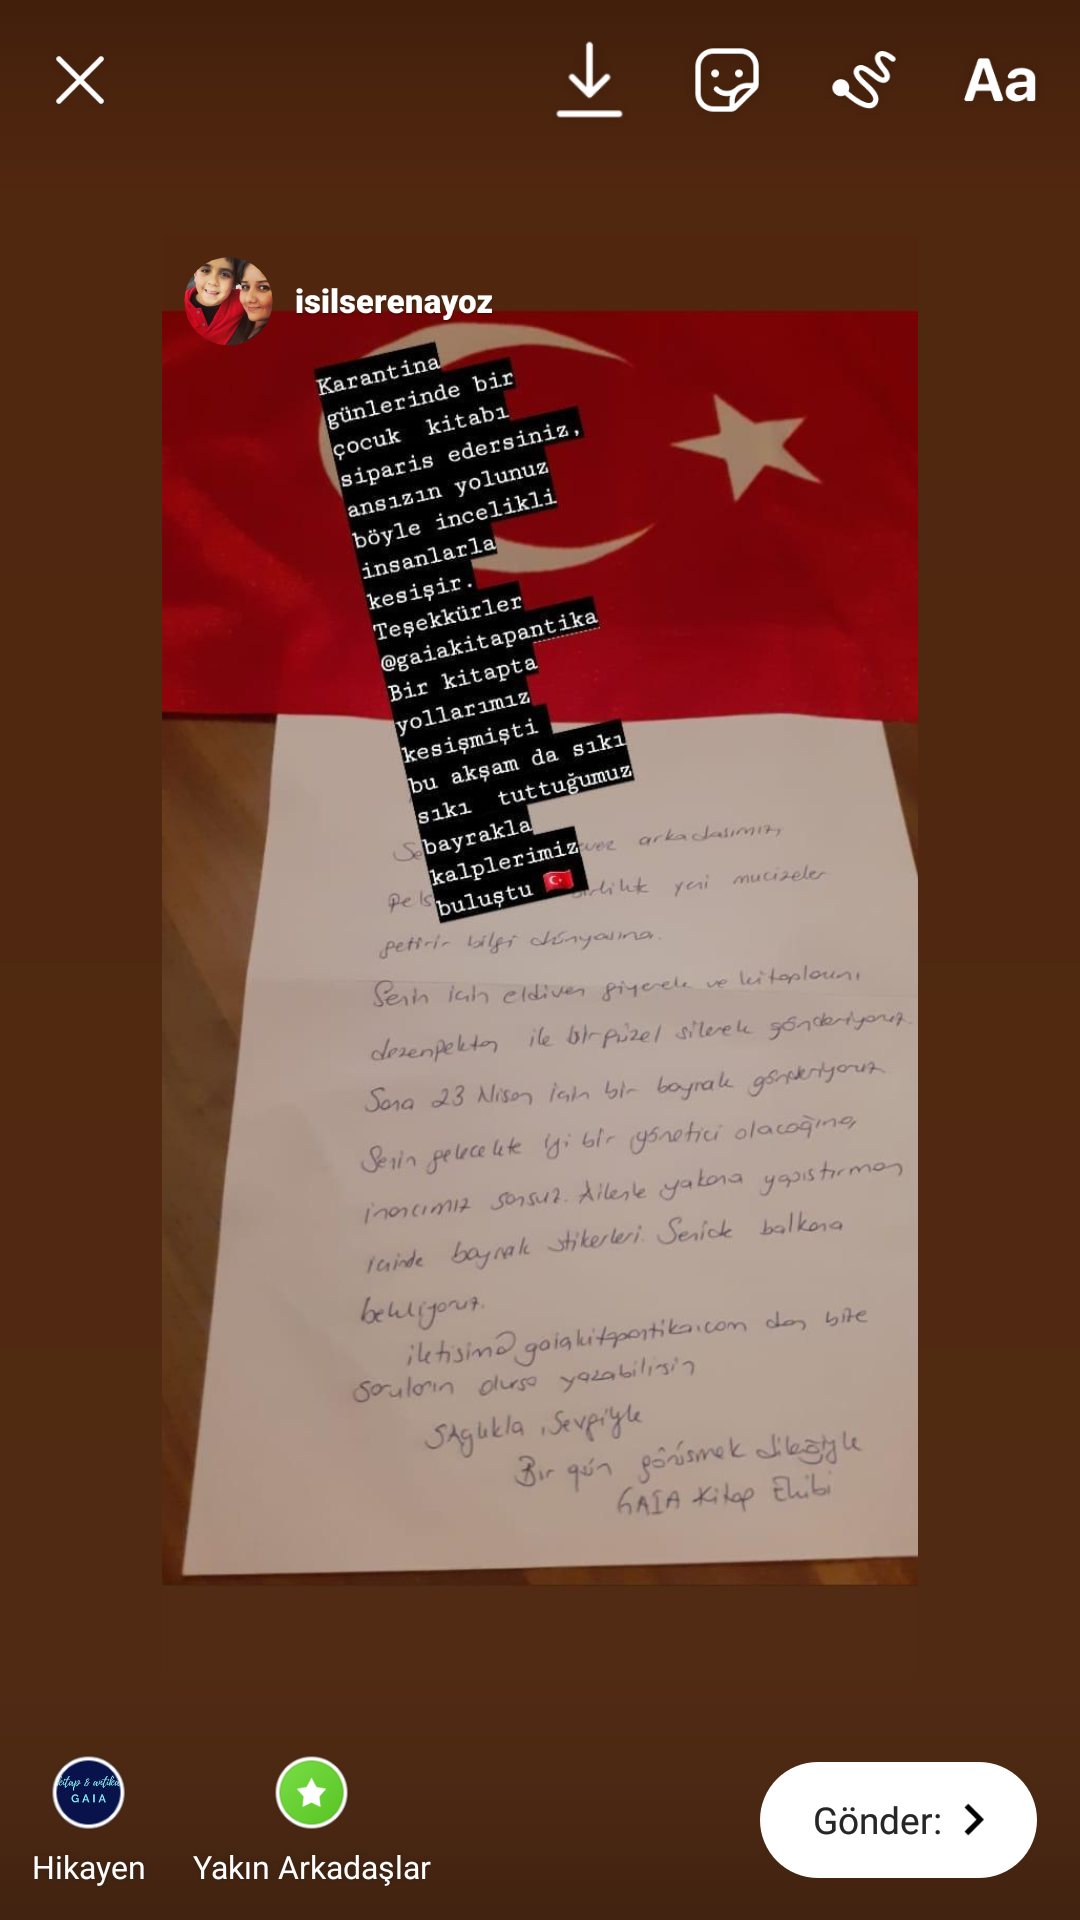 Aa
isilserenayoz
Karantina
günlerinde bir
çocuk kitabı
siparis edersiniz,
ansızın yolunuz
böyle incelikli
insanlarla
kesişir.
Teşekkürler
@gaiakitapantika
Bir kitapta
yollarımız
kesişmişti
bu akşam da sıkı
sıkı tuttuğumuz
bayrakla
kalplerimiz
buluştu 🇹🇷
arkadasımız,
yeni mucizeler
getirir bilgi dünyasına.
Senin için eldiven giyerek ve kitaplarını
dezenfektan ile bir güzel silerek gönderiyoruz.
Sana 23 Nisan için bir bayrak gönderiyoruz
Senin gelecekte iyi bir yönetici olacağına
inancımız sonsuz. Ailenle yakana yapıstırman
icinde bayrak stikerleri. Senide balkona
bekliyoruz.
iletisim@gaiakitapantika.com dan bize
soruların olursa yazabilirsin
Sağlıkla, Sevgiyle
Bir gün görüsmek dileğiyle
GAIA Kitap Ekibi
kitap & antika
GAIA
Hikayen
Yakın Arkadaşlar
Gönder: